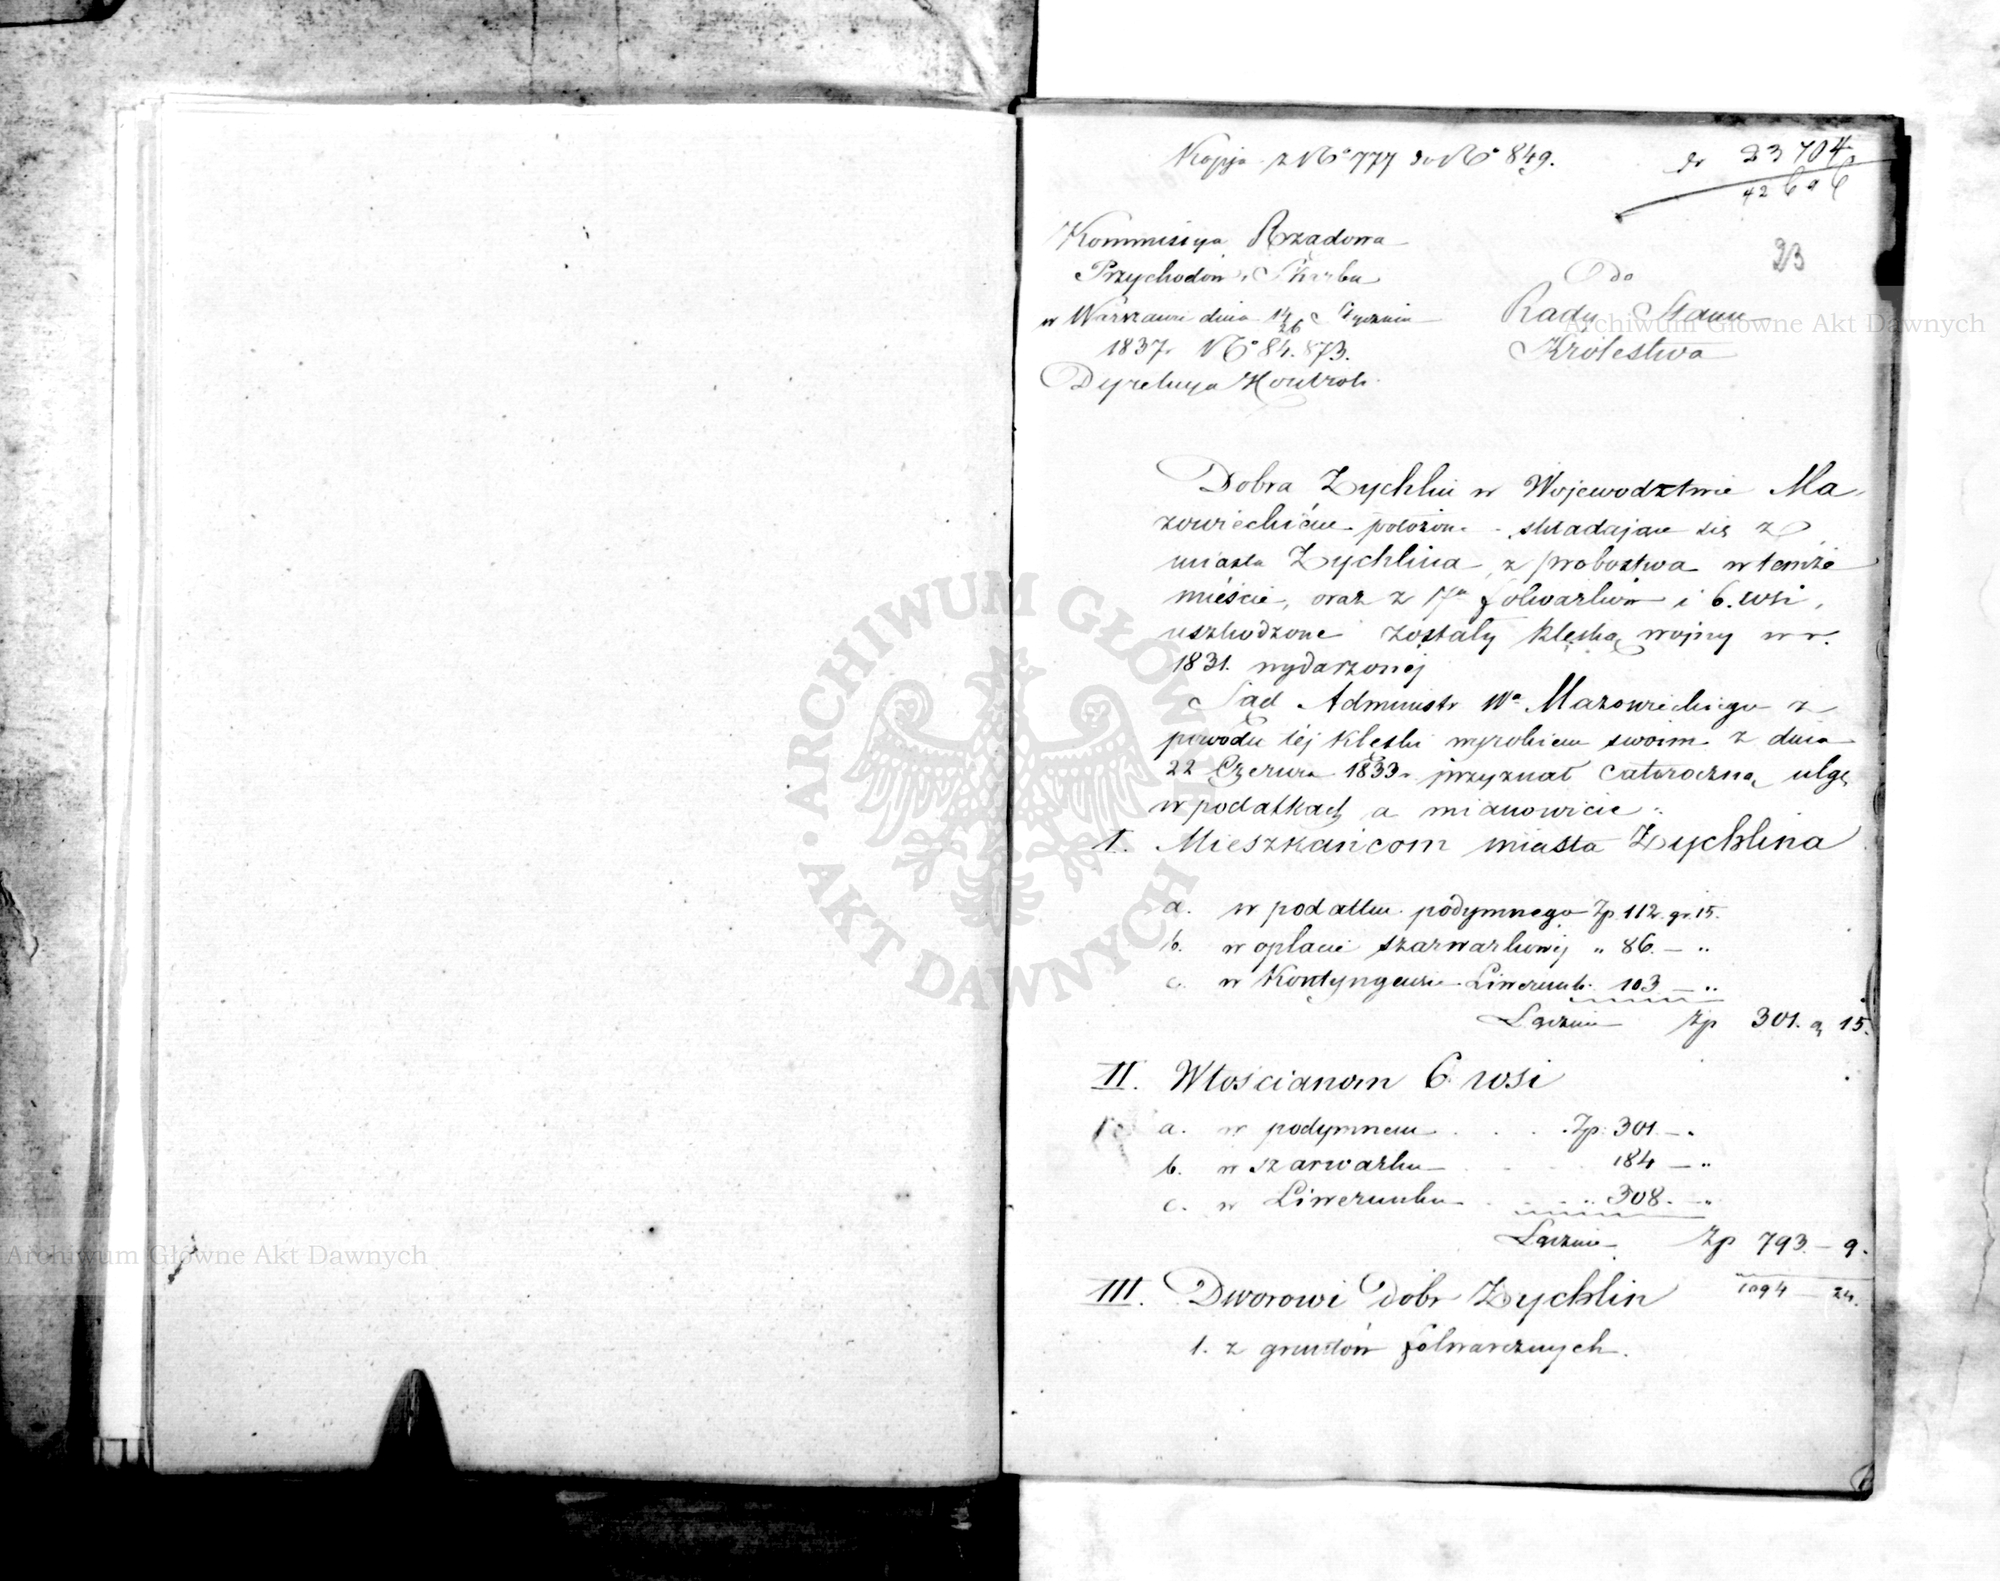 Kopja z N° 777 do N° 849.
23704
42696
23
Kommissya Rządowa
Przychodów i Skarbu
w Warszawie dnia 14/26 Stycznia
1837 r N° 84.873.
Dyrekcya Kontroli
Do
Rady Stanu
Królestwa
Dobra Zychlin w Województwie Ma-
zowieckiém położone składające się z
miasta Zychlina, z probostwa w temże
mieście, oraz z folwarków i 6. wsi,
uszkodzone zostały klęską wojny w r.
1831. wydarzonej
Sąd Administr Wa Mazowieckiego z
powodu téj klęski wyrokiem swoim z dnia
22 Czerwca 1833 r przyznał całoroczną ulgę
w podatkach a mianowicie:
I. Mieszkańcom miasta Zychlina
a. w podatku podymnego Zp. 112. gr. 15.
b. w opłacie szarwarkowéj „ 86. — „
c. w Kontyngensie Liwerunk. 103 — „
Łącznie Zp 301. g 15.
II. Włościanom 6. wsi
a. w podymnem . . . Zp. 301. — „
b. w szarwarku . . . 184 — „
c. w Liwerunku . . . „ 308. — „
Łącznie Zp 793. — 9.
1094 — 24.
III. Dworowi dóbr Zychlin
1. z gruntów folwarcznych.
ARCHIWUM GŁÓWNE AKT DAWNYCH
Archiwum Główne Akt Dawnych
Archiwum Główne Akt Dawnych